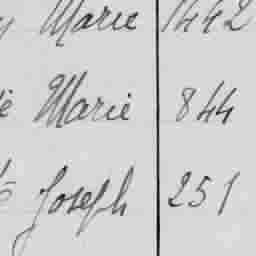 Marie 1442
Marie 844
Joseph 251